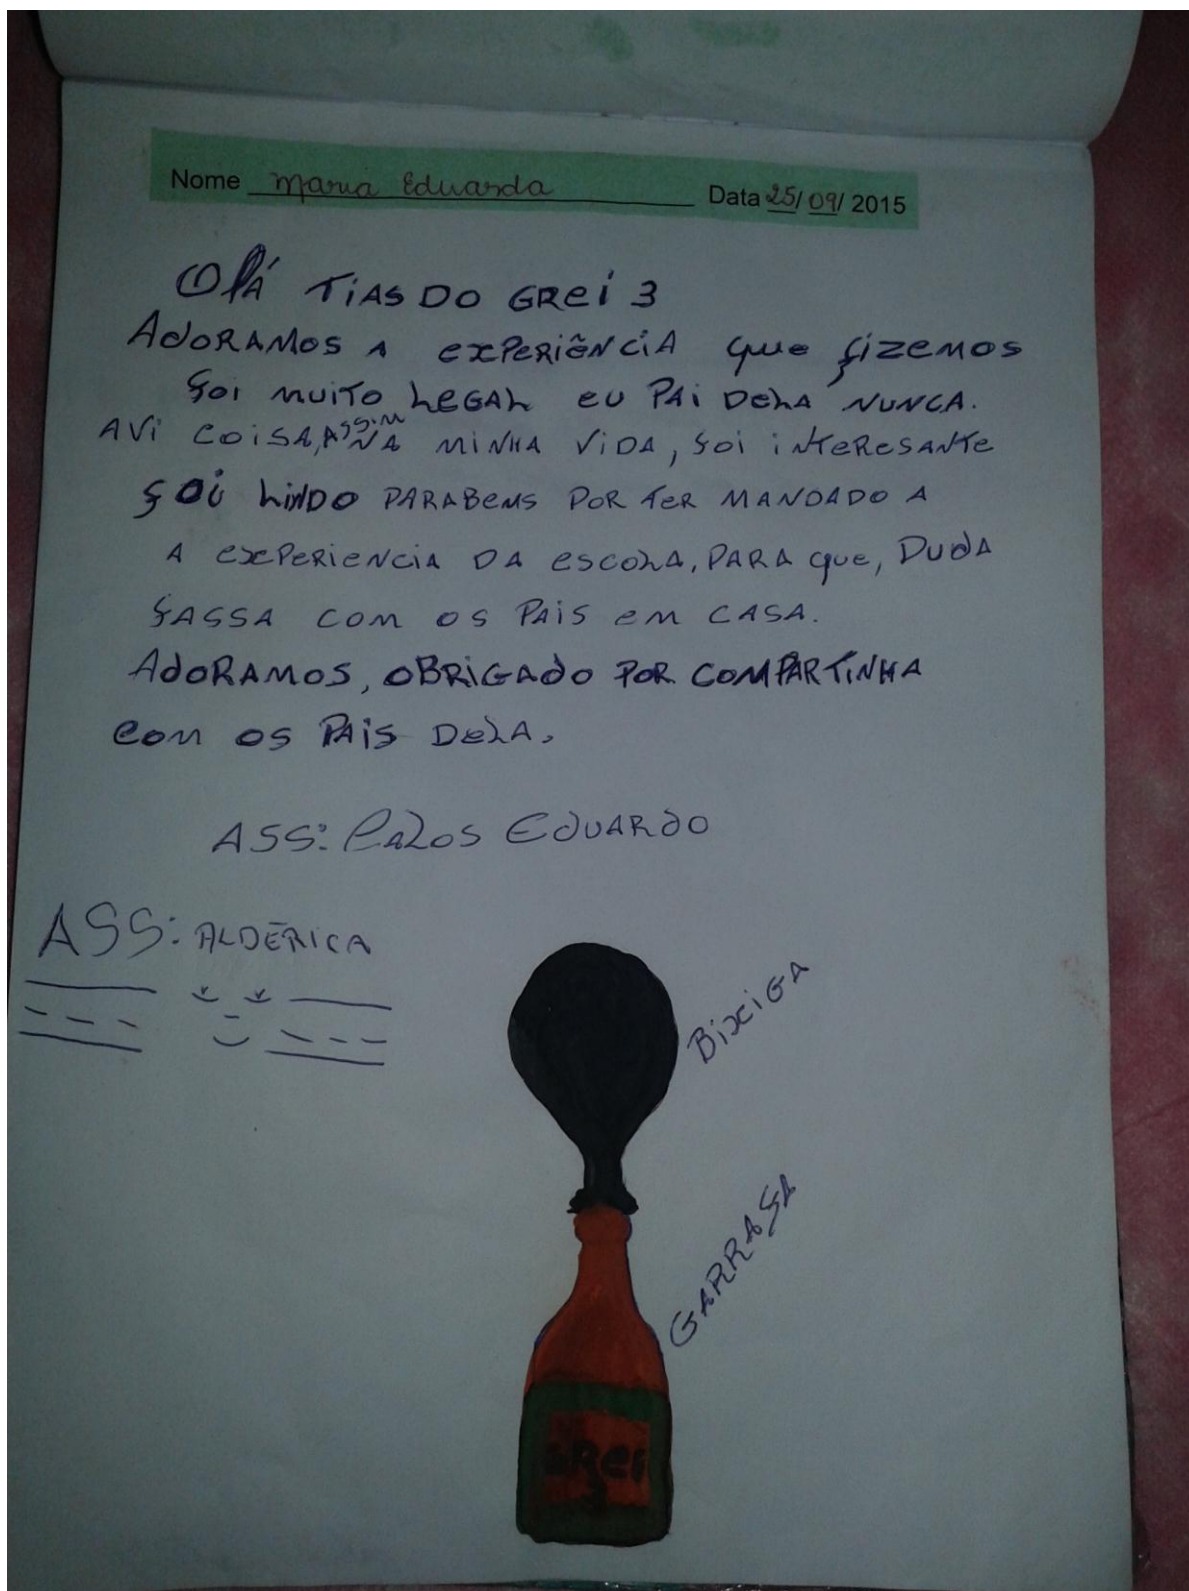 Nome Maria Eduarda Data 25/09/2015
Olá TiAS DO GREi 3
ADORAMOS A EXPERIÊNCIA que fizemos
foi muiTo LEGAL EU PAi DELA NUNCA.
AVi COISA, ASSiM NA MINHA VIDA, foi iNTERESANTE
foi LiNDO PARABENS POR TER MANDADO A
A EXPERIENCIA DA ESCOLA, PARA que, DUDA
fASSA COM OS PAIS EM CASA.
ADORAMOS, OBRIGADO POR COMPARTINHA
COM OS PAIS DELA.
ASS: EDUARDO
ASS: ALDERICA
BixiGA
GARRAfA
GREi
3